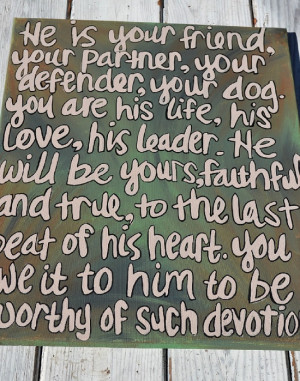 He is your friend,
your partner, your
defender, your dog.
you are his life, his
love, his leader. He
will be yours, faithful
and true, to the last
beat of his heart. you
owe it to him to be
worthy of such devotion